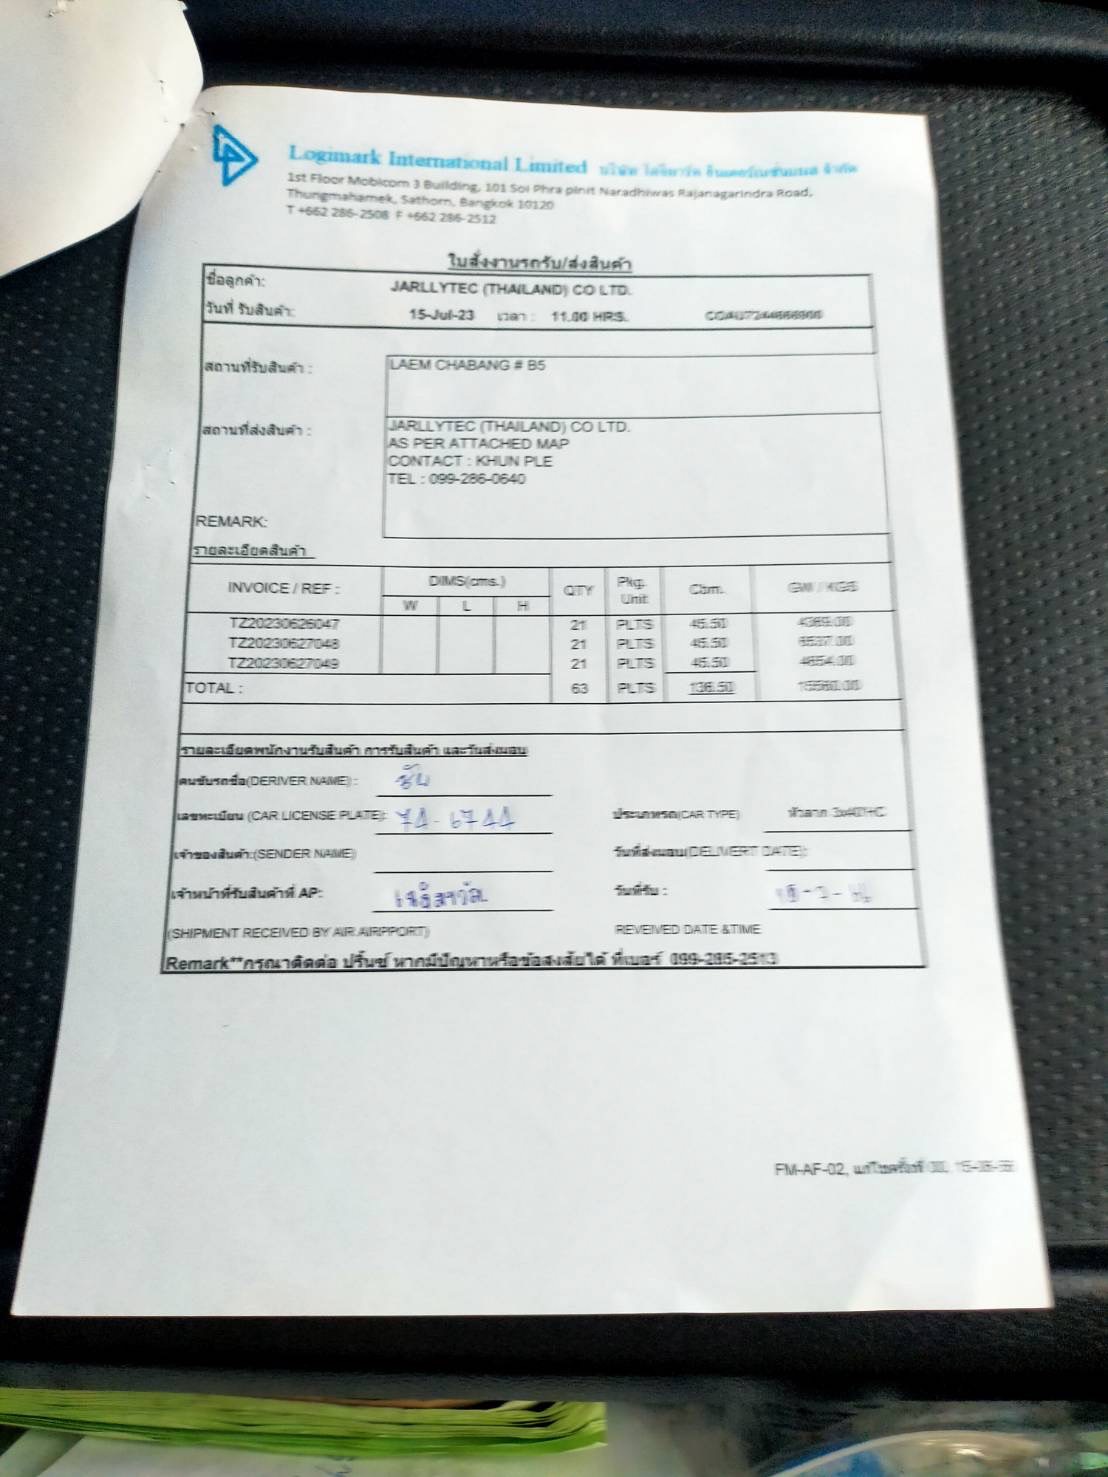 Logimark International Limited บริษัท โลจิมาร์ค อินเตอร์เนชั่นแนล จำกัด
1st Floor Mobicom 3 Building, 101 Soi Phra pinit Naradhiwas Rajanagarindra Road,
Thungmahamek, Sathorn, Bangkok 10120
T +662 286-2508 F +662 286-2512
ใบสั่งงานรถรับ/ส่งสินค้า
ชื่อลูกค้า: JARLLYTEC (THAILAND) CO LTD.
วันที่ รับสินค้า: 15-Jul-23 เวลา : 11.00 HRS.
สถานที่รับสินค้า : LAEM CHABANG # B5
สถานที่ส่งสินค้า : JARLLYTEC (THAILAND) CO LTD.
AS PER ATTACHED MAP
CONTACT : KHUN PLE
TEL : 099-286-0640
REMARK:
รายละเอียดสินค้า
INVOICE / REF : DIMS(cms.) QTY Pkg. Unit Cbm. GW / KGS
W L H
TZ20230626047 21 PLTS 45.50 4369.00
TZ20230627048 21 PLTS 45.50 6537.00
TZ20230627049 21 PLTS 45.50 4654.00
TOTAL : 63 PLTS 136.50 15560.00
รายละเอียดพนักงานรับสินค้า การรับสินค้า และวันส่งมอบ
คนขับรถชื่อ(DERIVER NAME) :
เลขทะเบียน (CAR LICENSE PLATE): 74-6744 ประเภทรถ(CAR TYPE) หัวลาก 3x40'HC
เจ้าของสินค้า:(SENDER NAME) วันที่ส่งมอบ(DELIVERIT DATE):
เจ้าหน้าที่รับสินค้าที่ AP: วันที่รับ :
(SHIPMENT RECEIVED BY AIR AIRPPORT) REVEIVED DATE &TIME
Remark**กรุณาติดต่อ ปริ้นซ์ หากมีปัญหาหรือข้อสงสัยได้ ที่เบอร์ 099-285-2513
FM-AF-02, แก้ไขครั้งที่ 00,